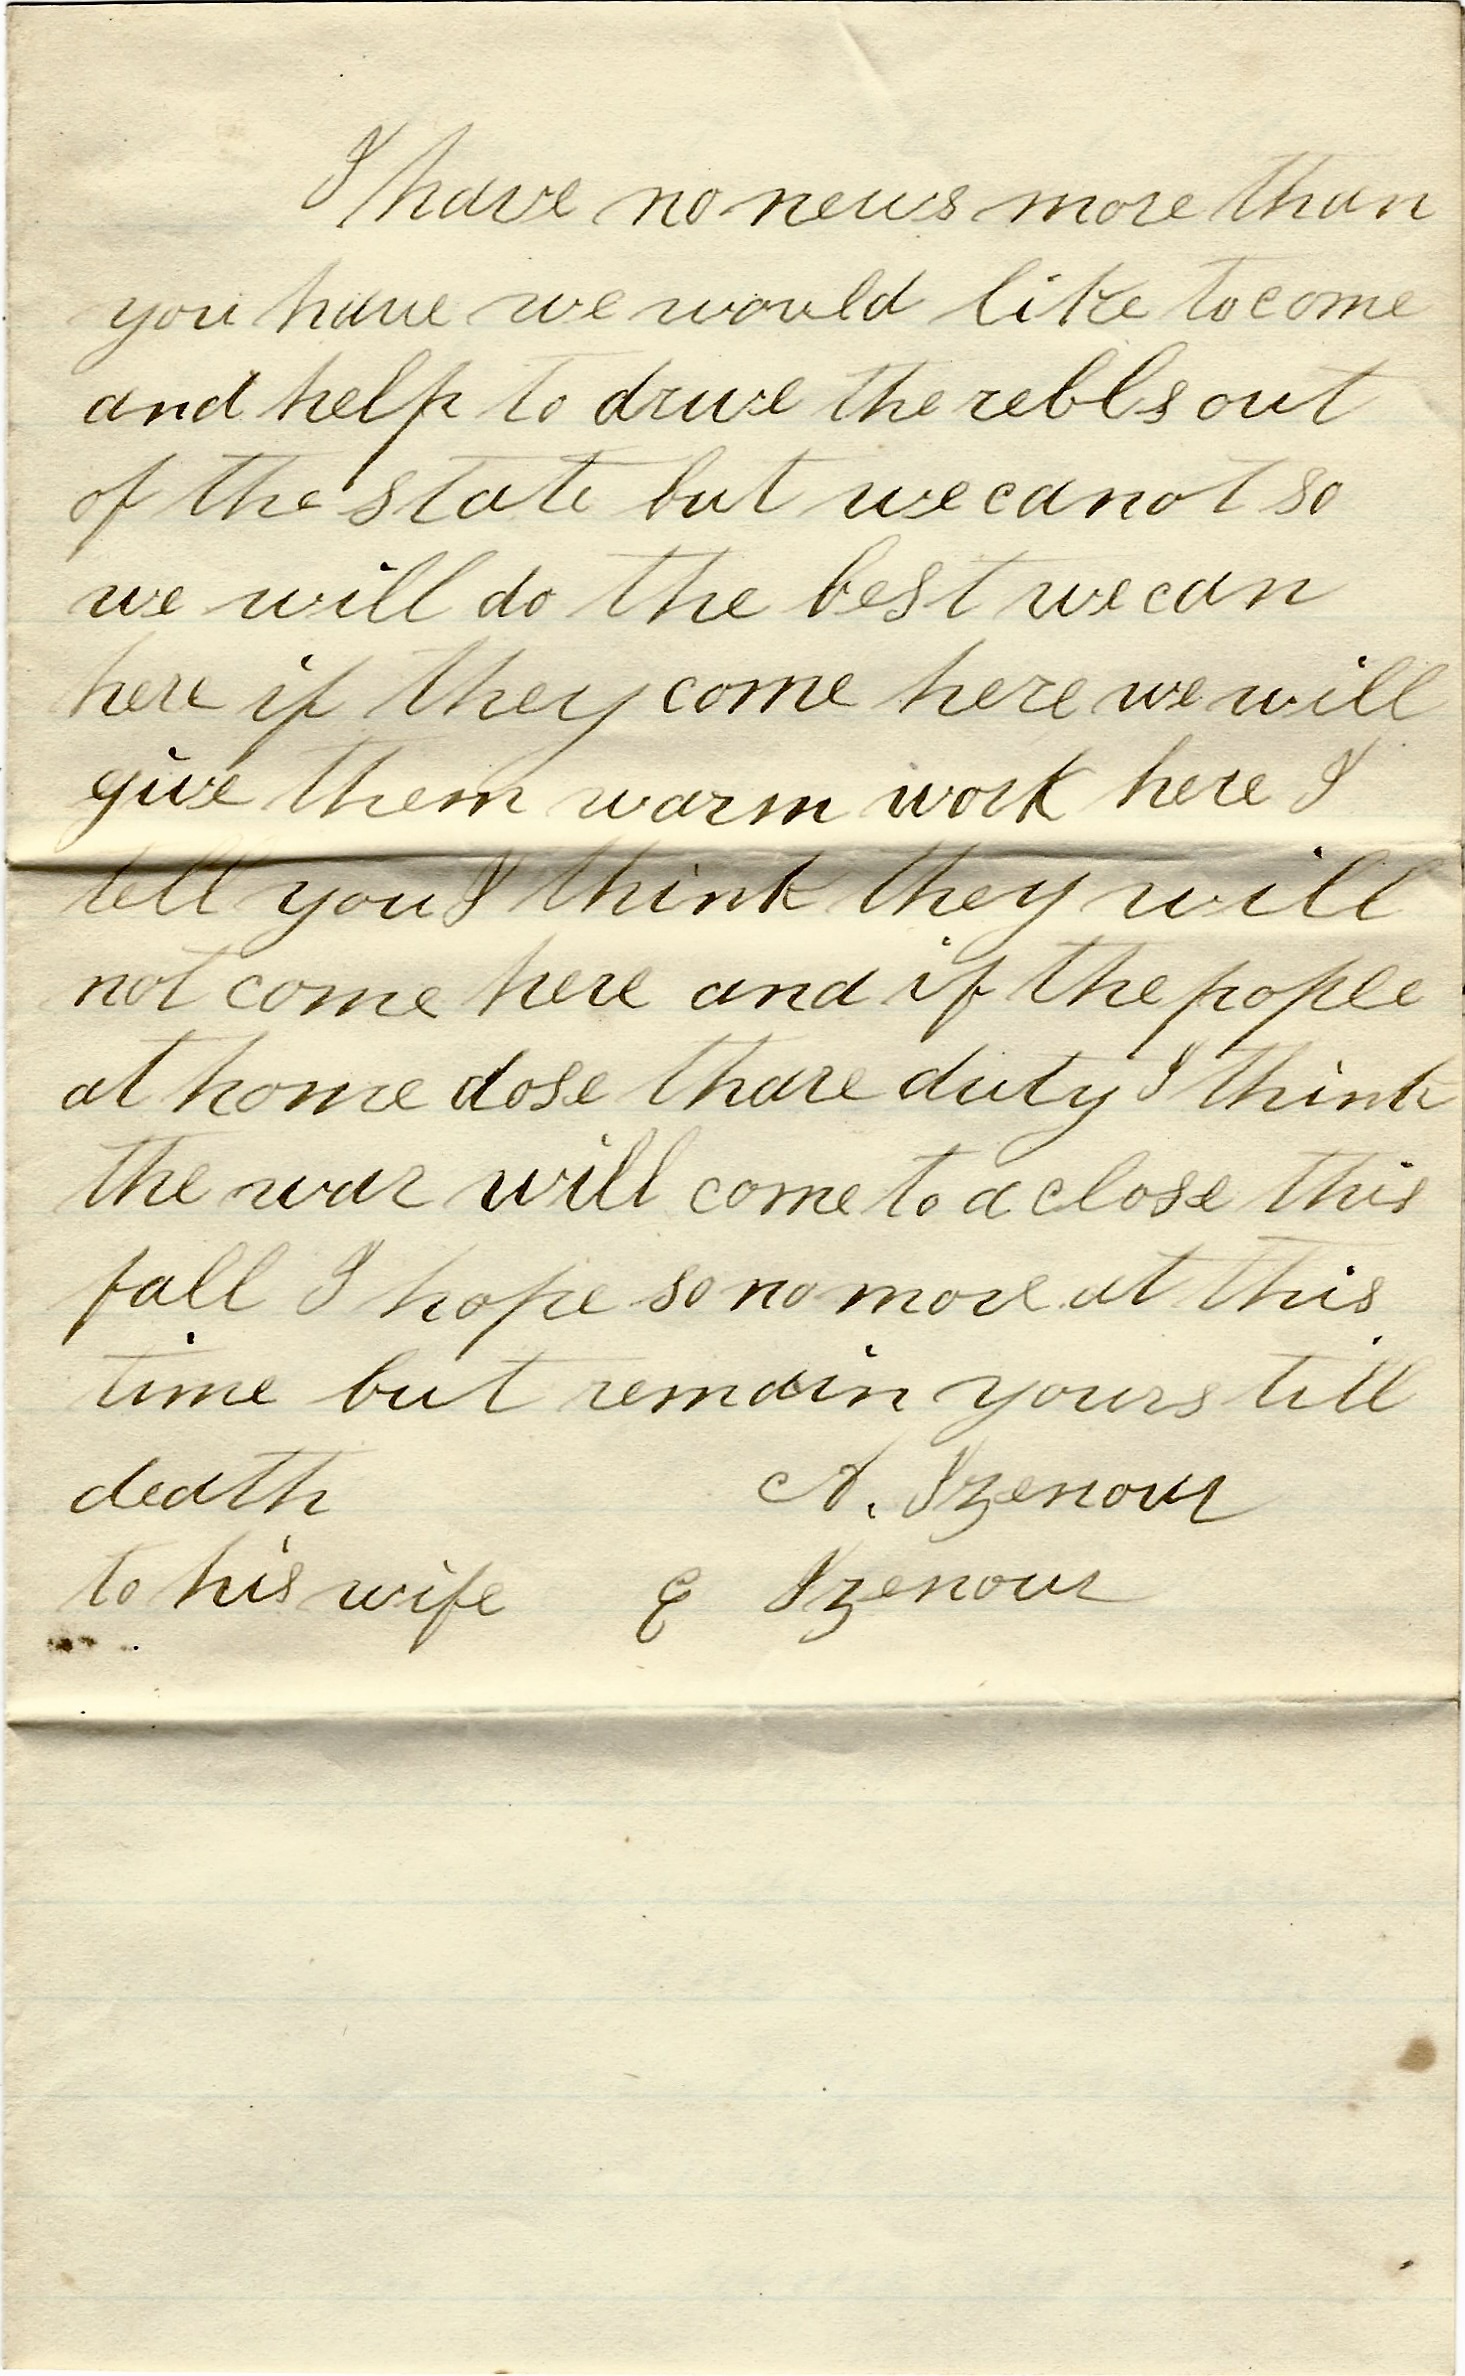 I have no news more than
you have we would like to come
and help to drive the rebls out
of the state but we canot so
we will do the best we can
here if they come here we will
give them warm work here I
tell you I think they will
not come here and if the pople
at home dose thare duty I think
the war will come to a close this
fall I hope so no more at this
time but remain yours till
death A. Izenour
to his wife E Izenour